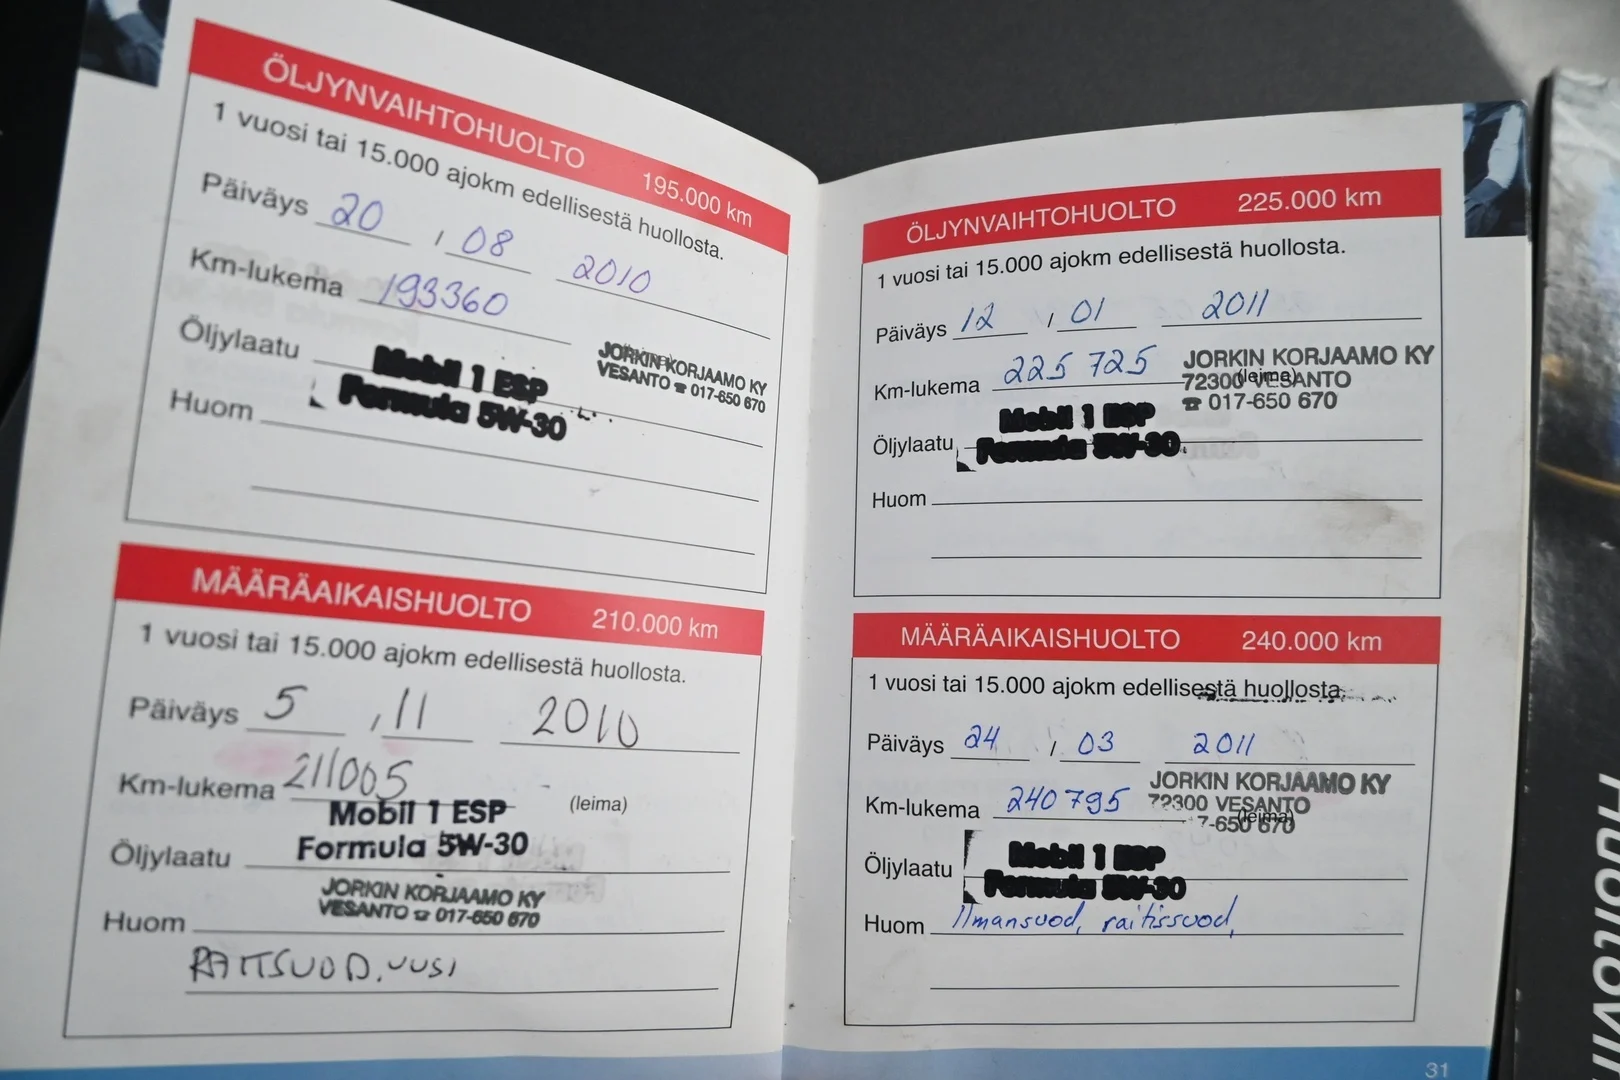 ÖLJYNVAIHTOHUOLTO 195.000 km
1 vuosi tai 15.000 ajokm edellisestä huollosta.
Päiväys 20 / 08 2010
Km-lukema 193360
JORKIN KORJAAMO KY
VESANTO ☎ 017-650 670
Öljylaatu Mobil 1 ESP
Formula 5W-30
Huom
MÄÄRÄAIKAISHUOLTO 210.000 km
1 vuosi tai 15.000 ajokm edellisestä huollosta.
Päiväys 5 / 11 2010
Km-lukema 211005
(leima)
Mobil 1 ESP
Öljylaatu Formula 5W-30
JORKIN KORJAAMO KY
VESANTO ☎ 017-650 670
Huom
RAITSUOD. UUSI
ÖLJYNVAIHTOHUOLTO 225.000 km
1 vuosi tai 15.000 ajokm edellisestä huollosta.
Päiväys 12 / 01 2011
Km-lukema 225 725
JORKIN KORJAAMO KY
72300 VESANTO
(leima)
☎ 017-650 670
Öljylaatu Mobil 1 ESP
Formula 5W-30
Huom
MÄÄRÄAIKAISHUOLTO 240.000 km
1 vuosi tai 15.000 ajokm edellisestä huollosta.
Päiväys 24 / 03 2011
Km-lukema 240 795
JORKIN KORJAAMO KY
72300 VESANTO
(leima)
7-650 670
Öljylaatu Mobil 1 ESP
Formula 5W-30
Huom Ilmansuod, raitissuod,
31